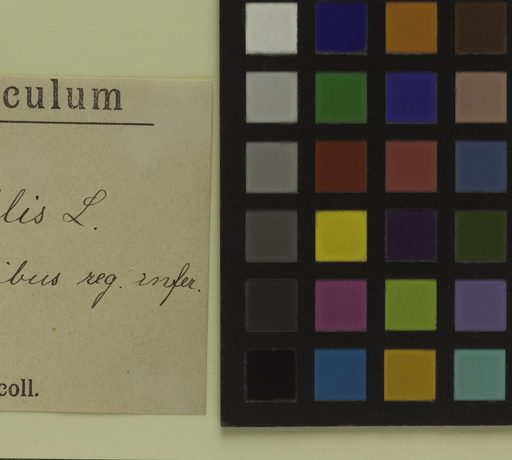 culum
lis L.
ibus reg. infer.
coll.